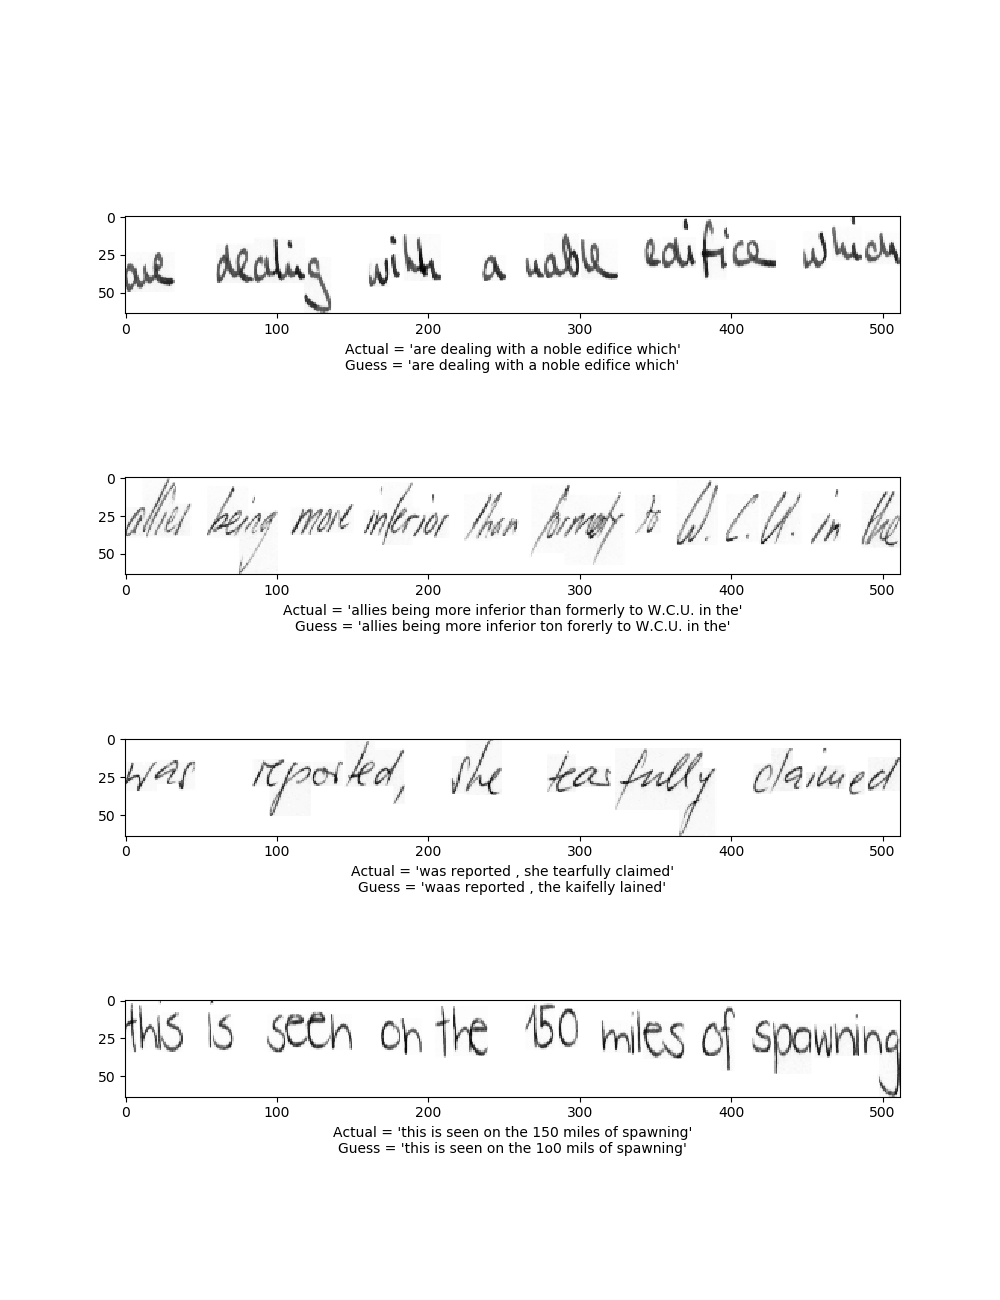 0
25
50
are dealing with a noble edifice which
0 100 200 300 400 500
Actual = 'are dealing with a noble edifice which'
Guess = 'are dealing with a noble edifice which'
0
25
50
allies being more inferior than formerly to W.C.U. in the
0 100 200 300 400 500
Actual = 'allies being more inferior than formerly to W.C.U. in the'
Guess = 'allies being more inferior ton forerly to W.C.U. in the'
0
25
50
was reported, she tearfully claimed
0 100 200 300 400 500
Actual = 'was reported , she tearfully claimed'
Guess = 'waas reported , the kaifelly lained'
0
25
50
this is seen on the 150 miles of spawning
0 100 200 300 400 500
Actual = 'this is seen on the 150 miles of spawning'
Guess = 'this is seen on the 1o0 mils of spawning'